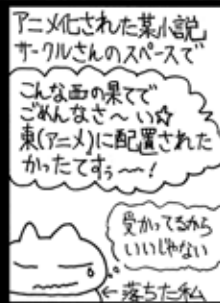 アニメ化された某小説
サークルさんのスペースで
こんな西の果てで
ごめんなさ〜い☆
東(アニメ)に配置された
かったてすぅ〜〜!
受かってるから
いいじゃない
←落ちた私